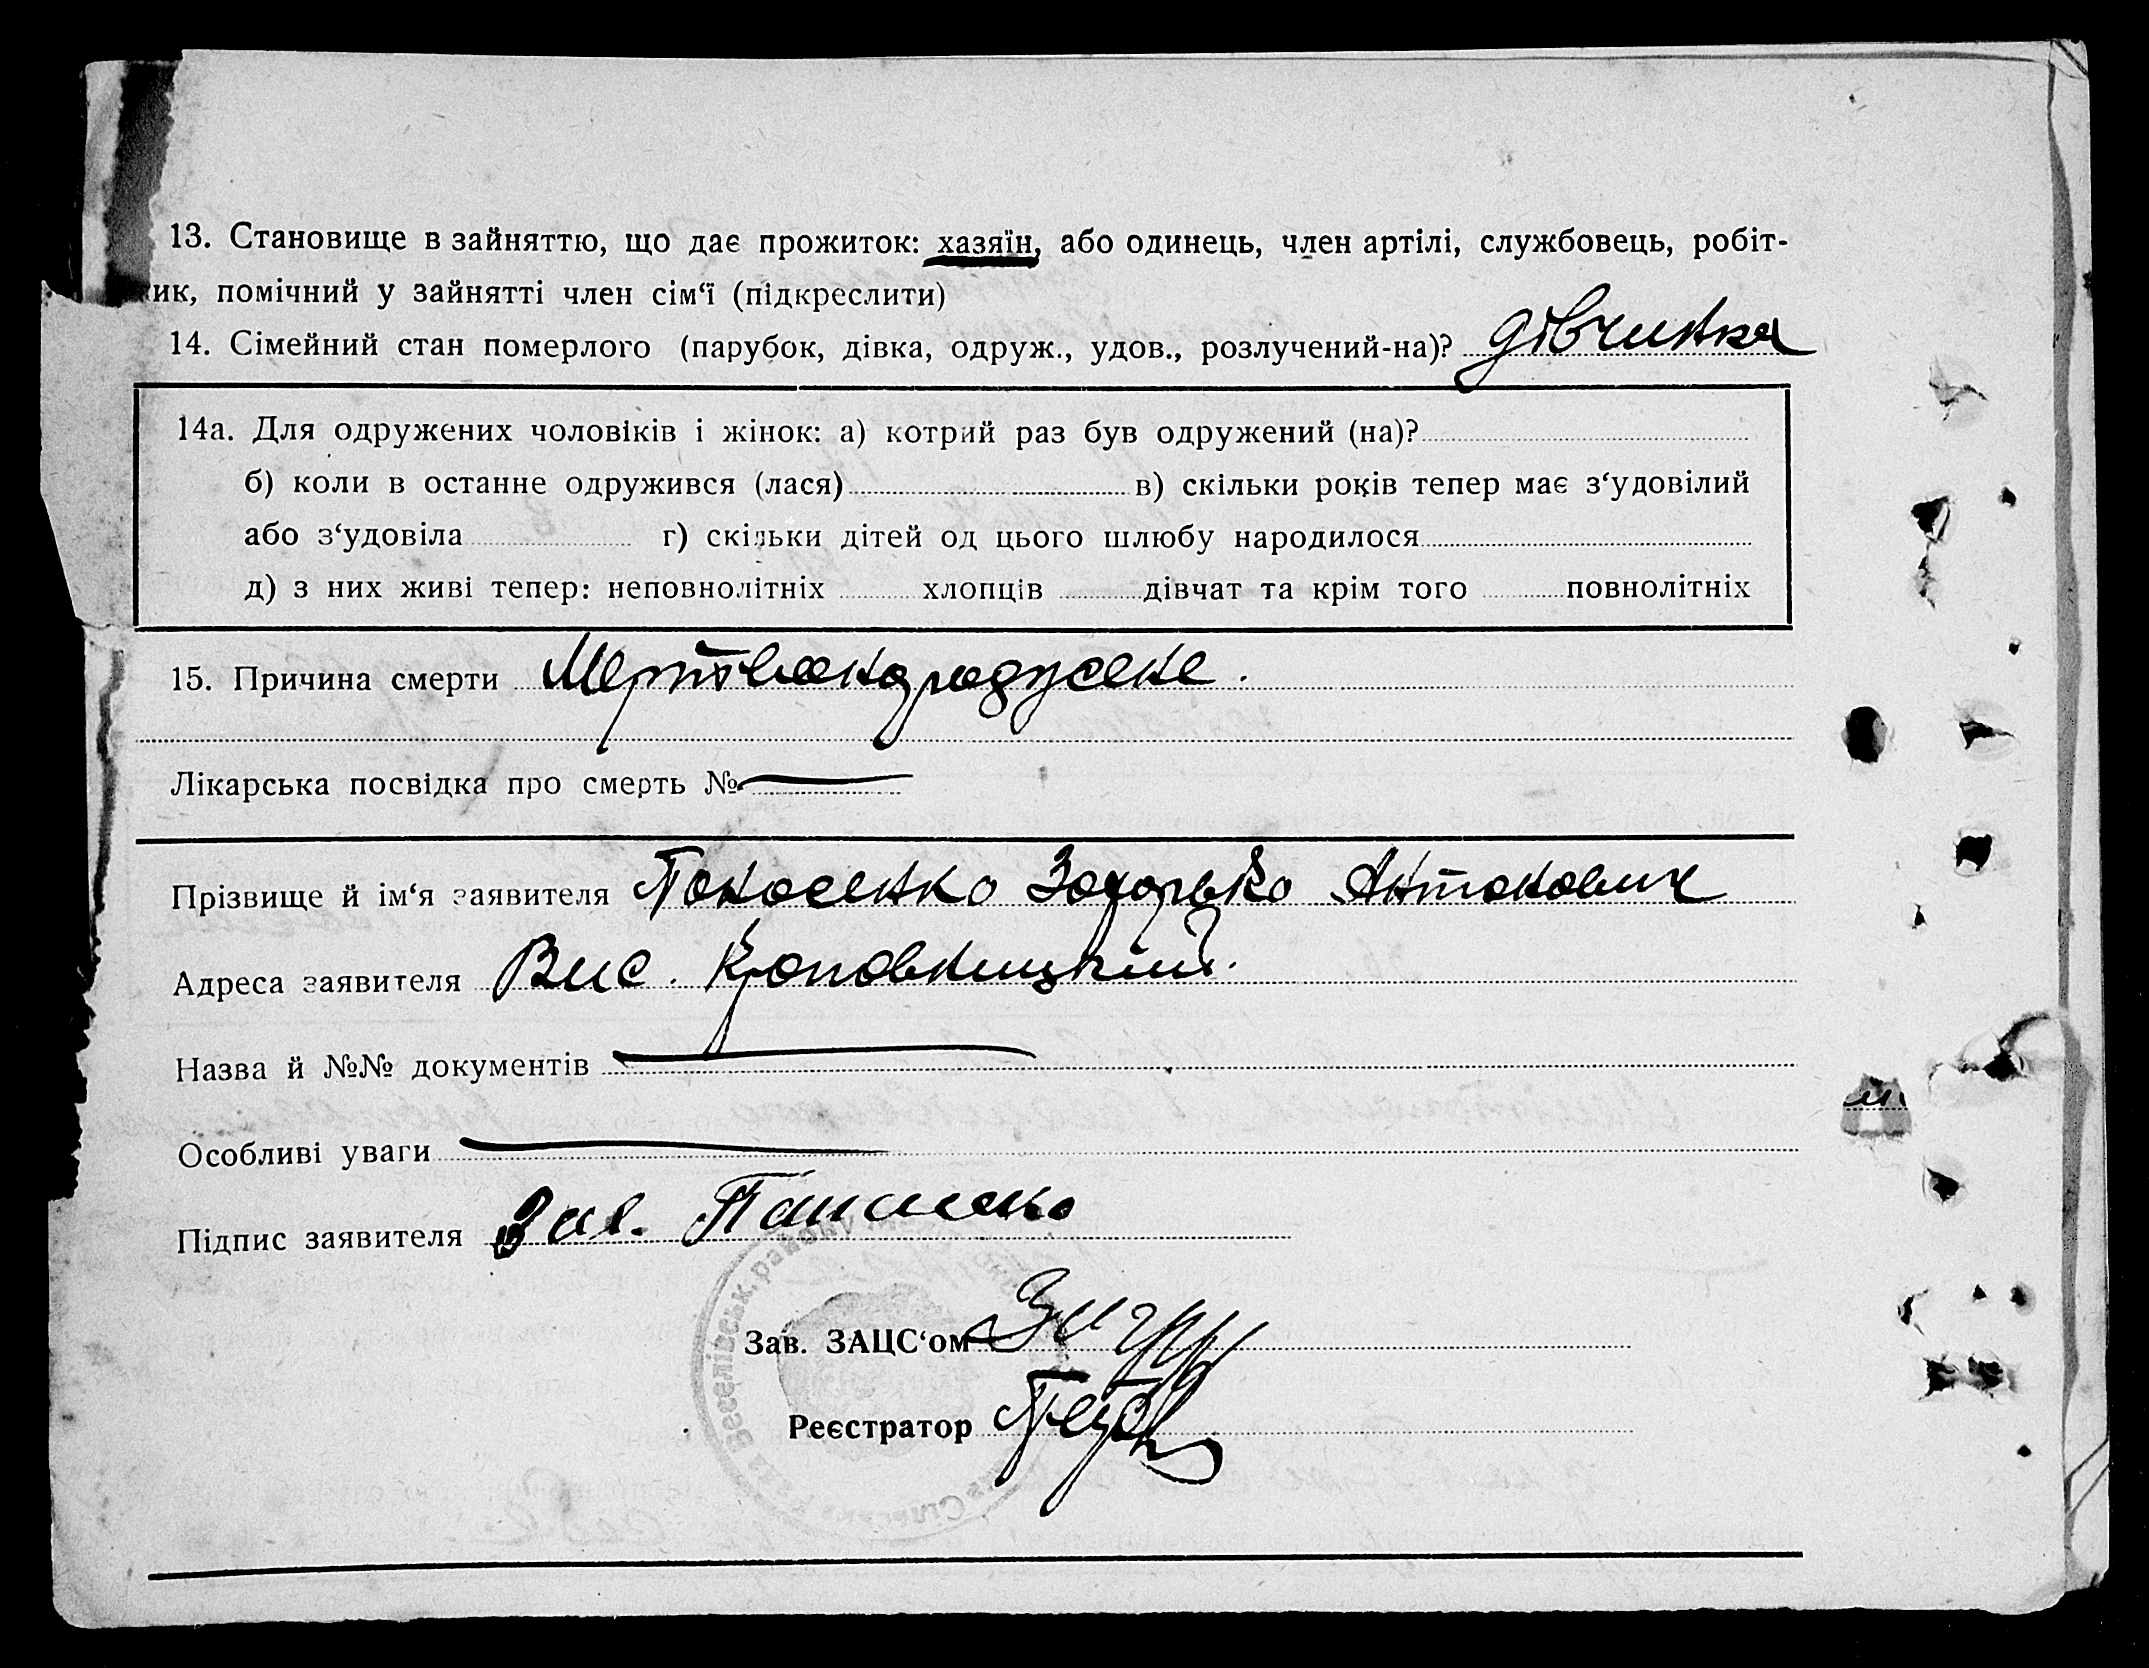 13. Становище в зайняттю, що дає прожиток: хазяїн, або одинець, член артілі, службовець, робіт-
ик, помічний у зайнятті член сім‘ї (підкреслити)
14. Сімейний стан померлого (парубок, дівка, одруж., удов., розлучений-на)? дівчинка
14а. Для одружених чоловіків і жінок: а) котрий раз був одружений (на)?
б) коли в останне одружився (лася) в) скільки років тепер має з‘удовілий
або з‘удовіла г) скільки дітей од цього шлюбу народилося
д) з них живі тепер: неповнолітніх хлопців дівчат та крім того повнолітніх
15. Причина смерти
Лікарська посвідка про смерть №
Прізвище й ім‘я заявителя Антонович
Адреса заявителя Вис. Кроповницький.
Назва й №№ документів
Особливі уваги
Підпис заявителя
Зав. ЗАЦС‘ом
Реєстратор
Сільська Рада Веселівськ. району